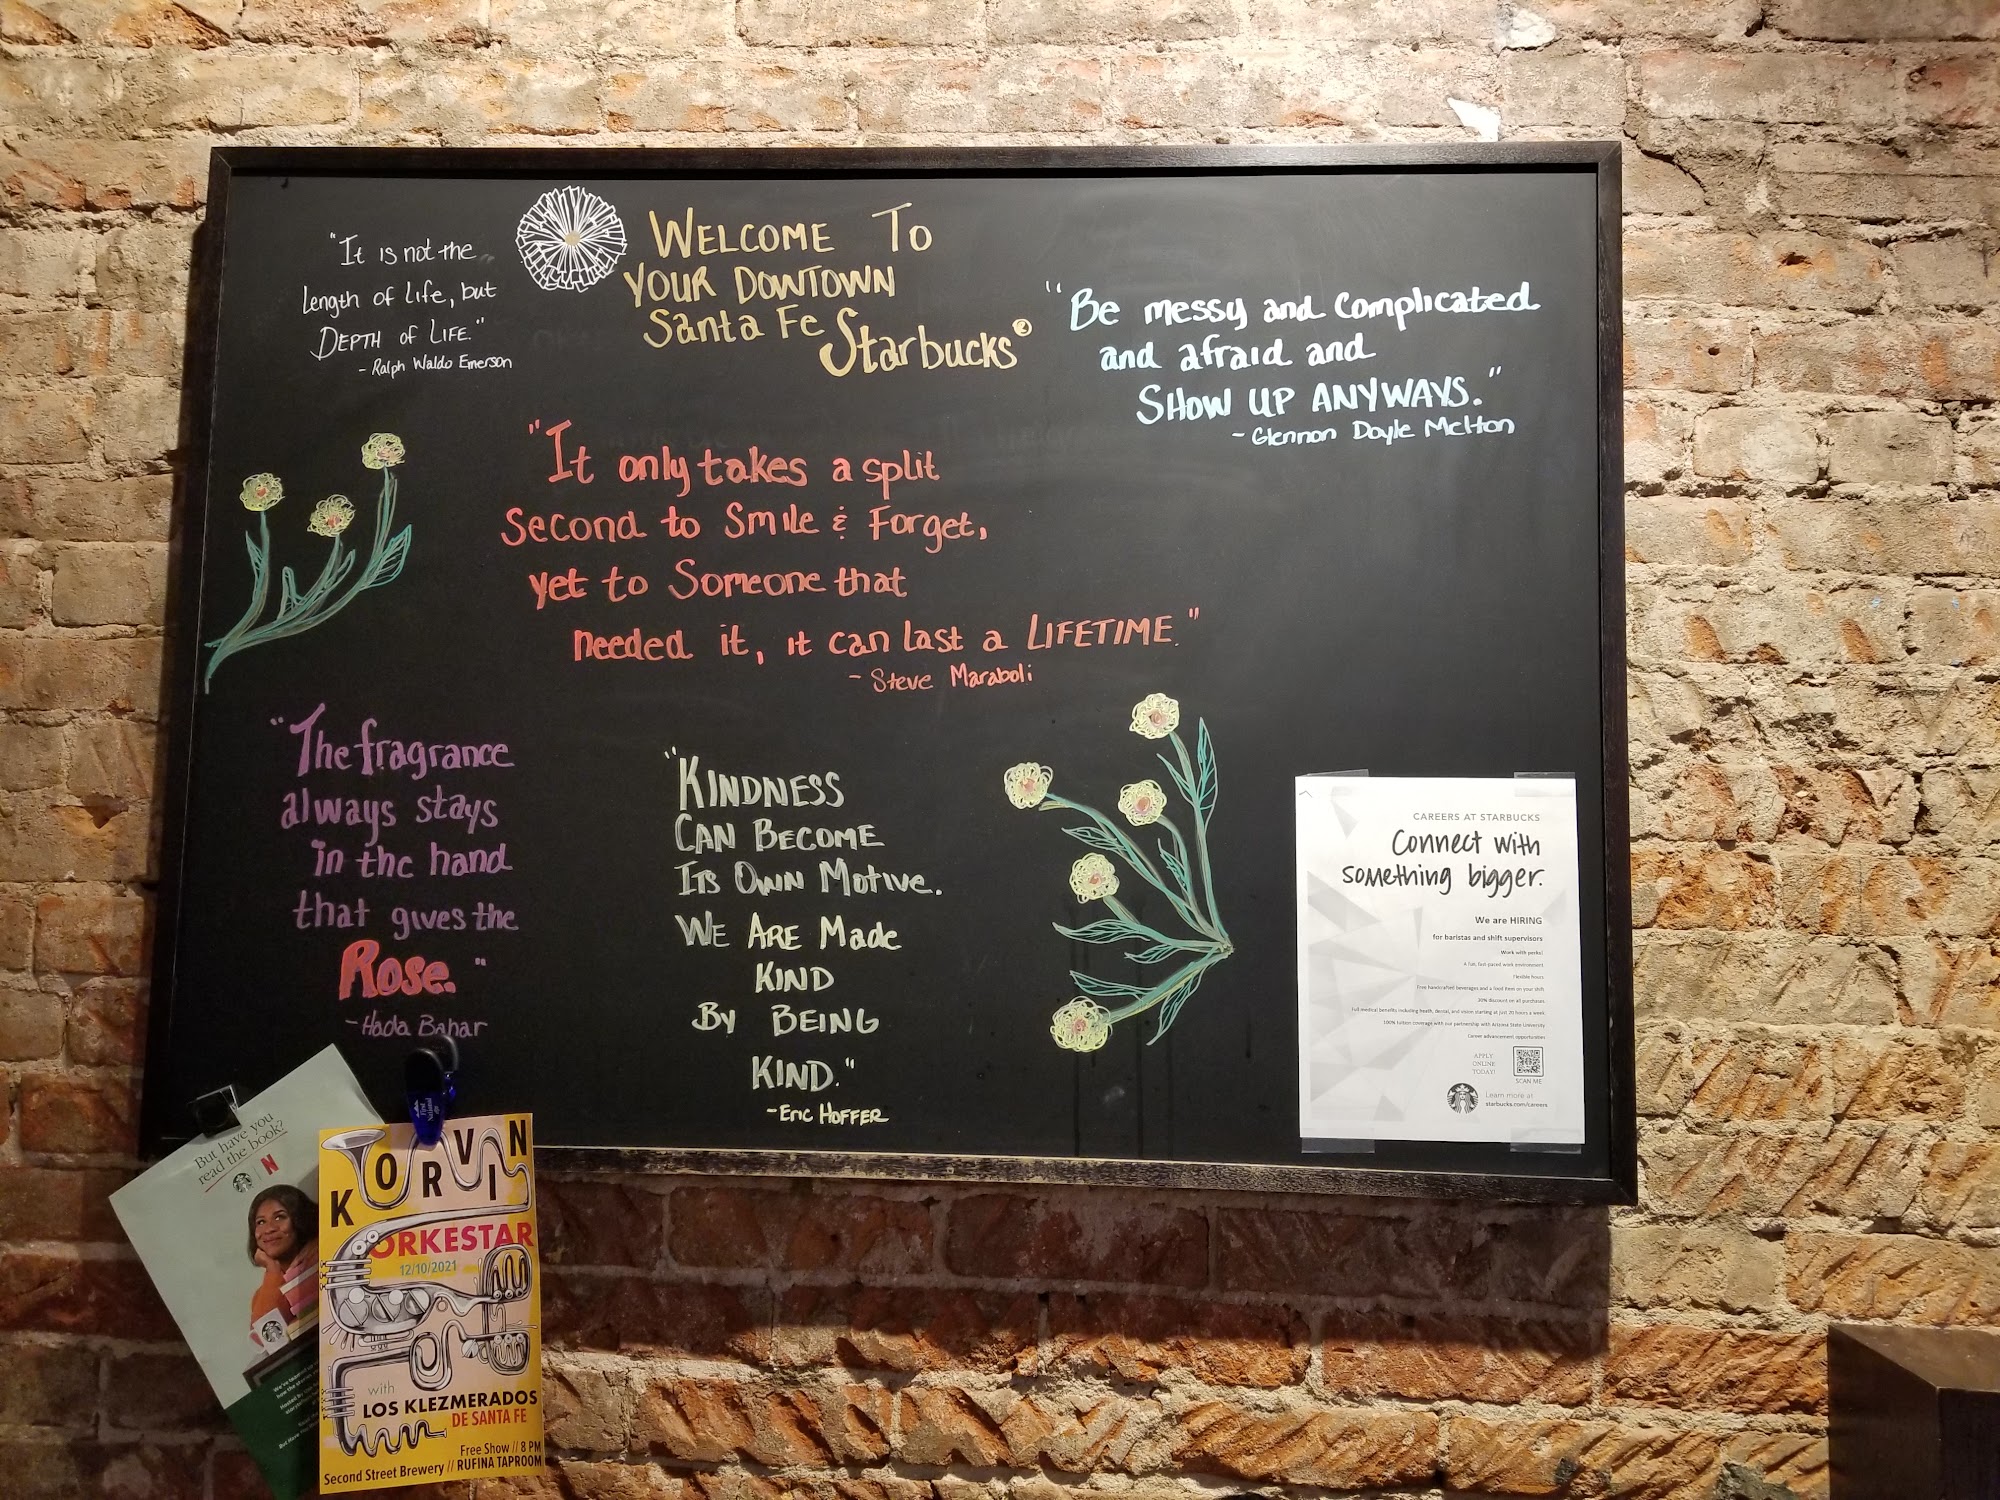 "It is not the
length of life, but
DEPTH of LIFE."
- Ralph Waldo Emerson
WELCOME TO
YOUR DOWTOWN
Santa Fe
Starbucks®
"Be messy and complicated
and afraid and
SHOW UP ANYWAYS."
- Glennon Doyle Melton
"It only takes a split
Second to Smile & Forget,
yet to Someone that
needed it, it can last a LIFETIME."
- Steve Maraboli
"The fragrance
always stays
in the hand
that gives the
Rose."
- Hada Bahar
"KINDNESS
CAN BECOME
ITS OWN MOTIVE.
WE ARE Made
KIND
BY BEING
KIND."
- Eric HOFFER
CAREERS AT STARBUCKS
Connect with
something bigger.
We are HIRING
for baristas and shift supervisors
Work with perks!
A fun, fast-paced work environment
Flexible hours
Free handcrafted beverages and a food item on your shift
30% discount on all purchases
Full medical benefits including health, dental, and vision starting at just 20 hours a week
100% tuition coverage with our partnership with Arizona State University
Career advancement opportunities
APPLY
ONLINE
TODAY!
SCAN ME
Learn more at
starbucks.com/careers
But have you
read the book?
N
First
National
KORVIN
ORKESTAR
12/10/2021
with
LOS KLEZMERADOS
DE SANTA FE
Free Show // 8 PM
Second Street Brewery // RUFINA TAPROOM